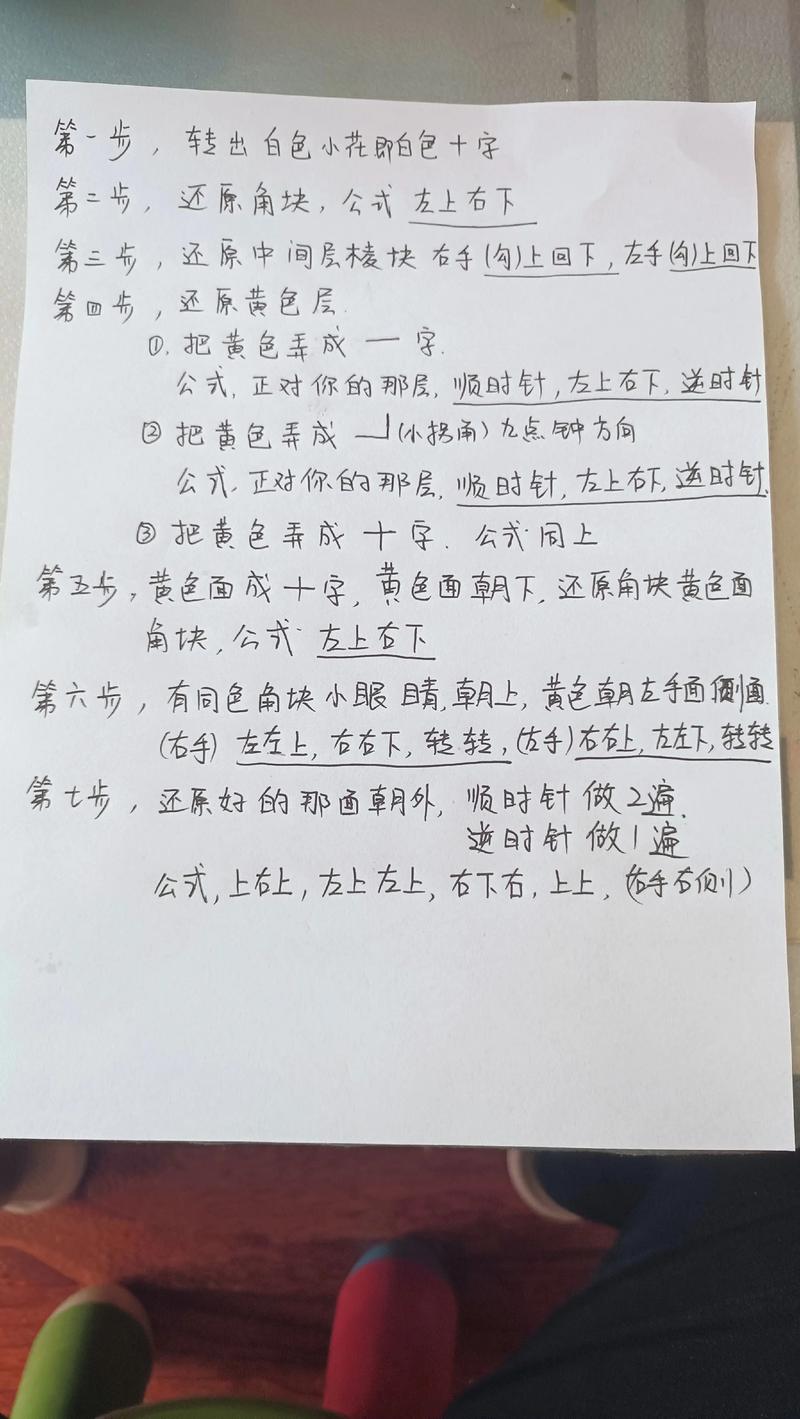 第一步，转出白色小花即白色十字
第二步，还原角块，公式 左上右下
第三步，还原中间层棱块 右手(勾)上回下，左手(勾)上回下
第四步，还原黄色层.
①. 把黄色弄成 一 字.
公式，正对你的那层，顺时针，左上右下，逆时针
② 把黄色弄成 ─┘(小拐角) 九点钟方向
公式，正对你的那层，顺时针，左上右下，逆时针.
③ 把黄色弄成 十 字. 公式同上
第五步，黄色面成十字，黄色面朝下，还原角块黄色面
角块，公式 左上右下
第六步，有同色角块小眼睛，朝上，黄色朝左手面侧面.
(右手) 左左上，右右下，转转，(左手)右右上，左左下，转转
第七步，还原好的那面朝外，顺时针做2遍.
逆时针做1遍
公式，上右上，左上左上，右下右，上上，(右手右侧)